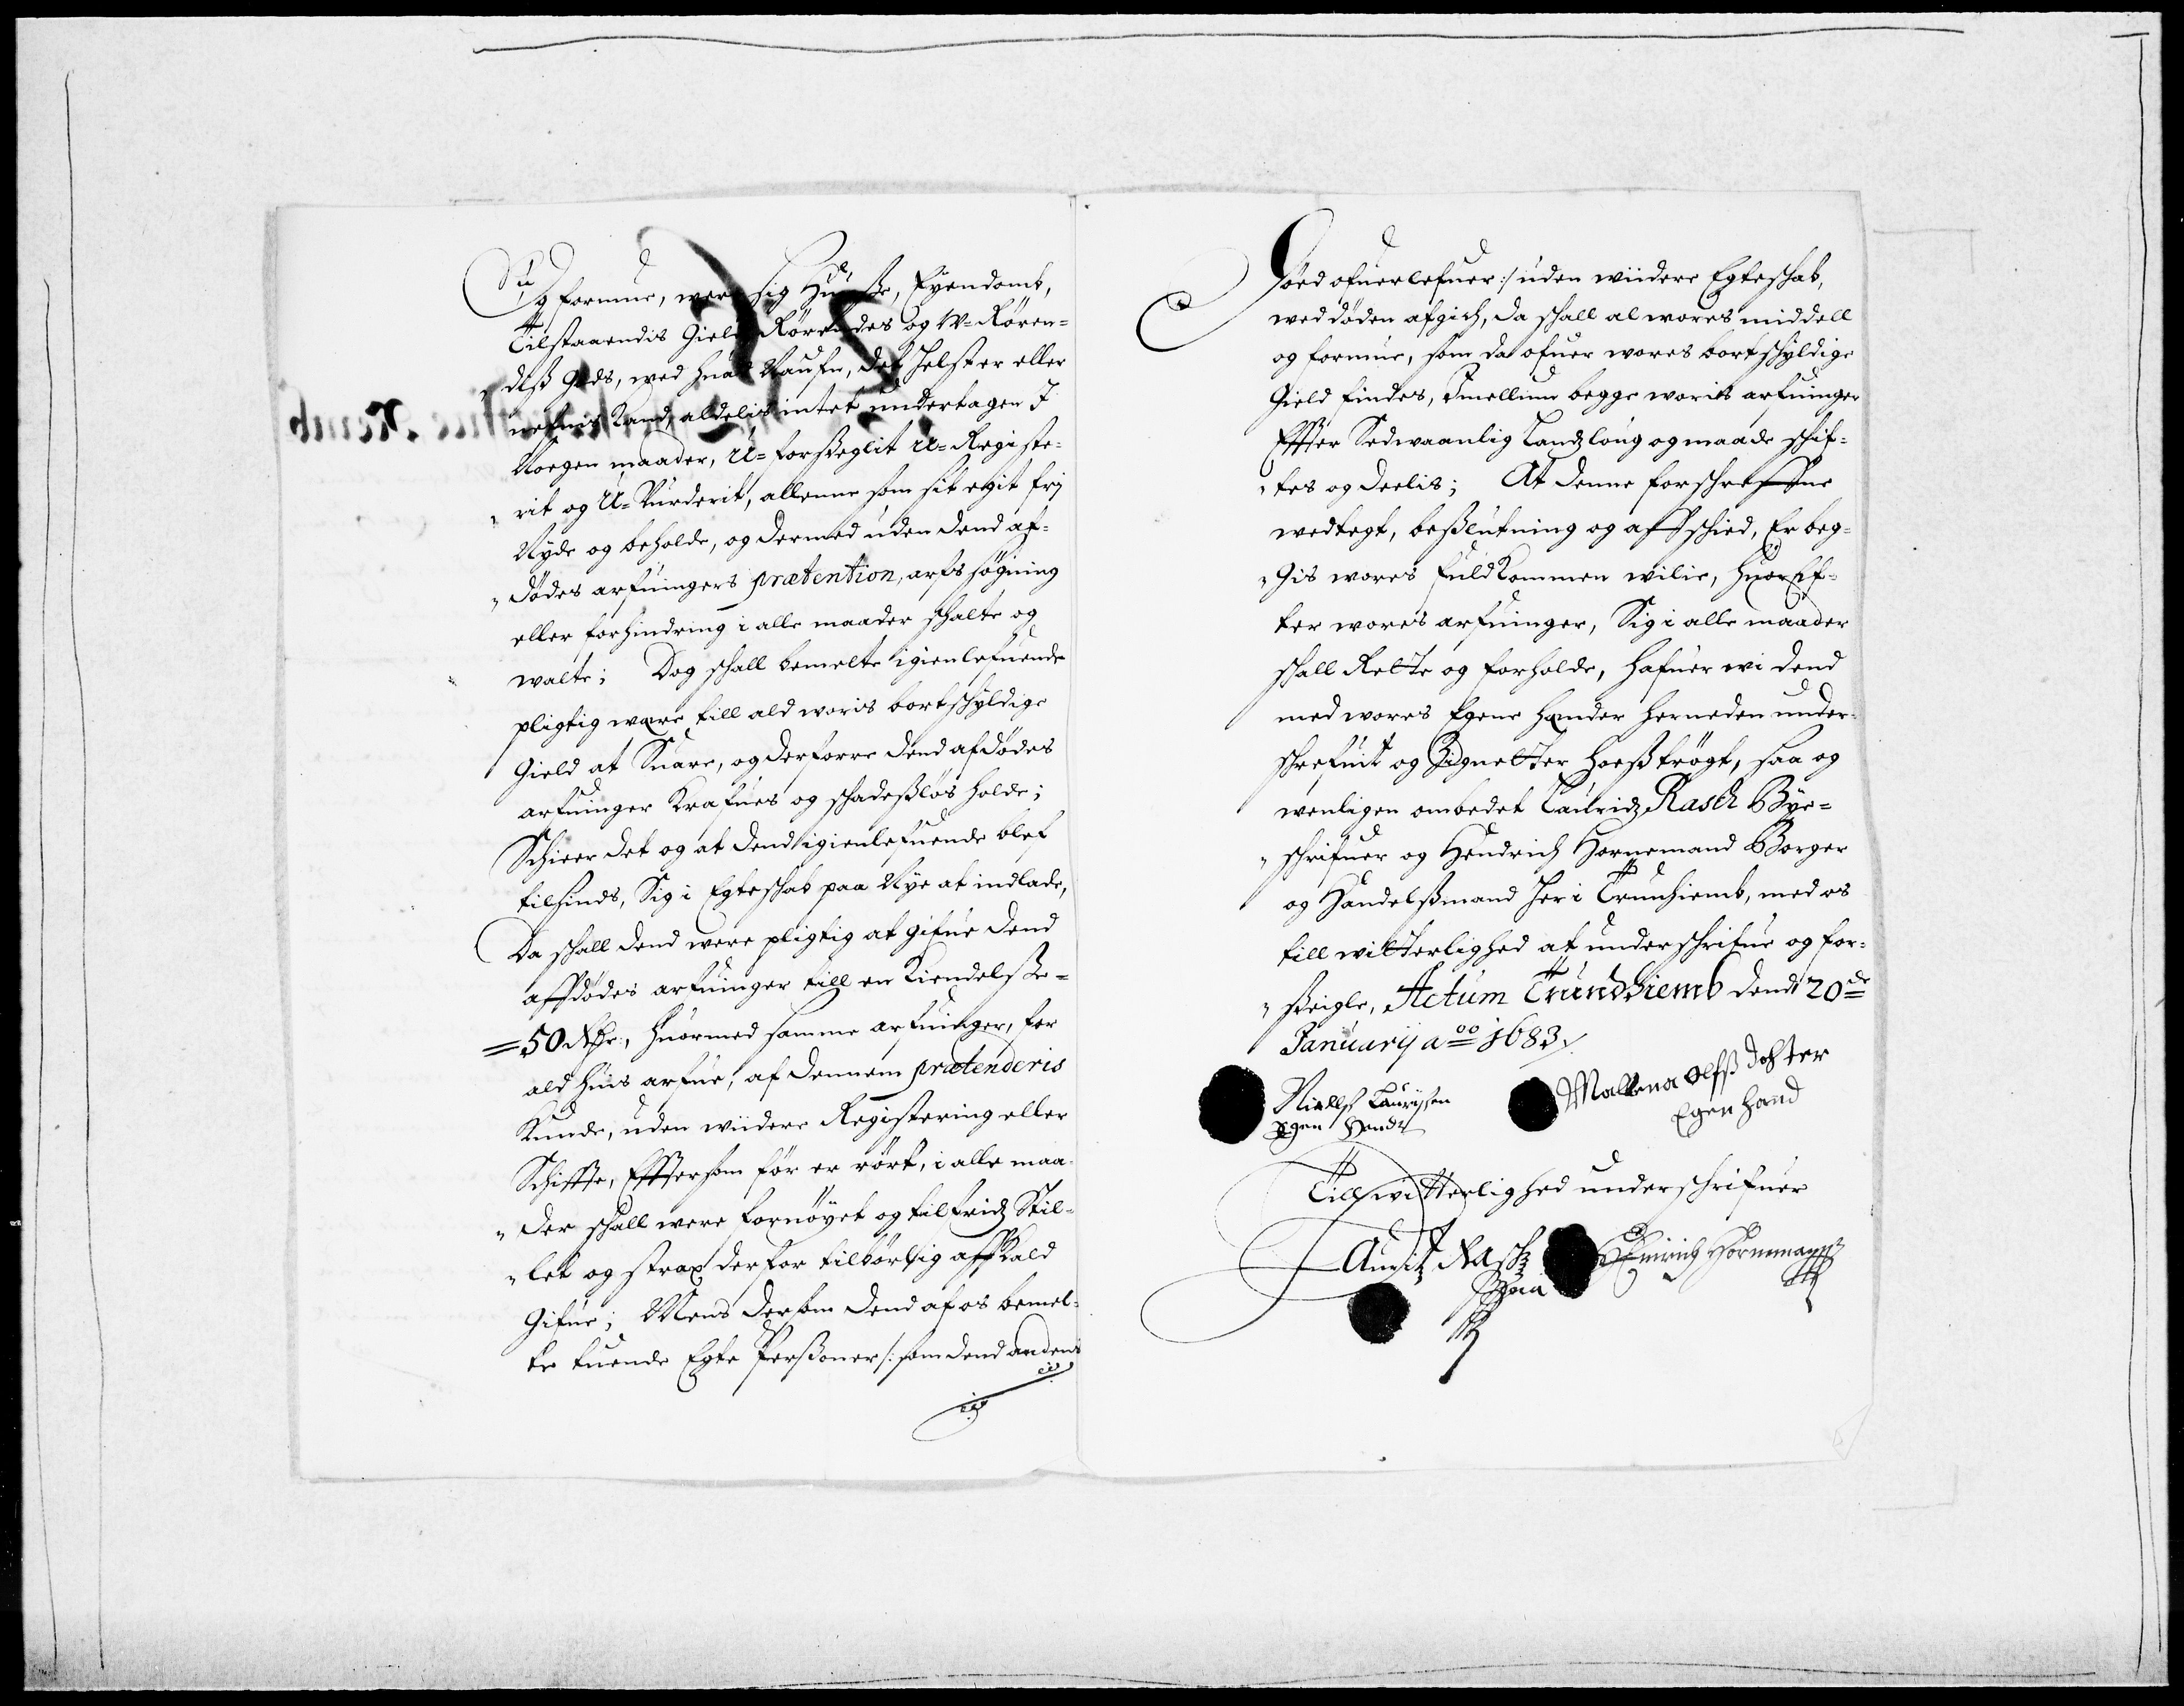 og formue, were sig Huuse, Eyendomb,
Tilstaaendis Gield Rørendes og W-Røren-
diß Gods, wed huad Naufn, det helst er eller
nefnis kand, aldelis intet undertagen I
Noegen maader, U-forseglit U-Registe-
rit og U-Vurderit, allenne som sit egit frj
Nyde og beholde, og dermed uden dend af-
dødes arfuingers prætention, arfs søgning
eller forhindring i alle maader schalte og
walte; Dog schall bemelte igienlefuende
pligtig wære, till ald woris bortschyldige
Gield at Suare, og derforre dend afdødes
arfuinger Krafues og schadesløs holde;
Scheer det og at dend igienlefuende blef
tilsinds, Sig i Egteschab paa Nye at indlade,
Da schall dend were pligtig at gifue dend
affdødes arfuinger till en Kiendelse-
50 Rdr:, huormed samme arfuinger, for
ald huis arfue, af dennem prætenderis
Kunde, uden widere Registering eller
Schiffte, Efftersom før er rørt, i alle maa-
der schall were fornøyet og tilfridz Stil-
let og strax derfor tilbørlig affkald
Gifue; Mens dersom dend af os bemel-
te tuende Egte Persoener /: som dend andens
Død ofuerlefuer :/ uden widere Egteschab,
wed døden afgich, da schall al wores middell
og formue, som da ofuer wores bortschyldige
Gield findes, Imellum begge woris arfuinger
Effter Sedwaanlig Landzloug og maade schif-
tes og deelis; At denne forschreffne
wedtegt, beslutning og affschied, Er beg-
gis wores fuldkommen wilie, huoref-
ter wores arfuinger, Sig i alle maader
schall Rette og forholde, hafuer wi dend
med wores Egene hænder herneden under-
schrefuit og Zignetter hoeßtrøgt, saa og
wenligen ombedet Lauridz Rasch Bye-
schrifuer og Hendrich Hornemand Borger
og Handelßmand her i Trunhiemb, med os
till witterlighed at underschrifue og for-
seigle, Actum Trundhiemb dend 20de
Januarij ao 1683
Niells Laurissen
Egen Handt
Maltena olfß dohter
Egen hand
Till witterlighed underschrifuer
Lauritz Rasch
Hinrich Hornemann